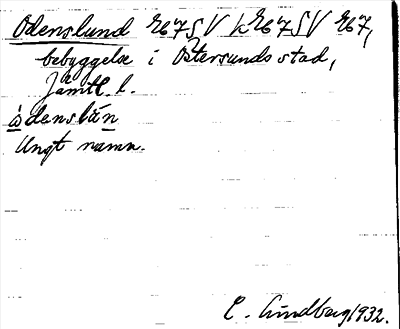 Odenslund 19E7SV k19E7SV 19E7,
bebyggelse i Östersunds stad,
Jämtl. l.
ɷ̀denslán
Ungt namn.
E. Lundberg 1932.